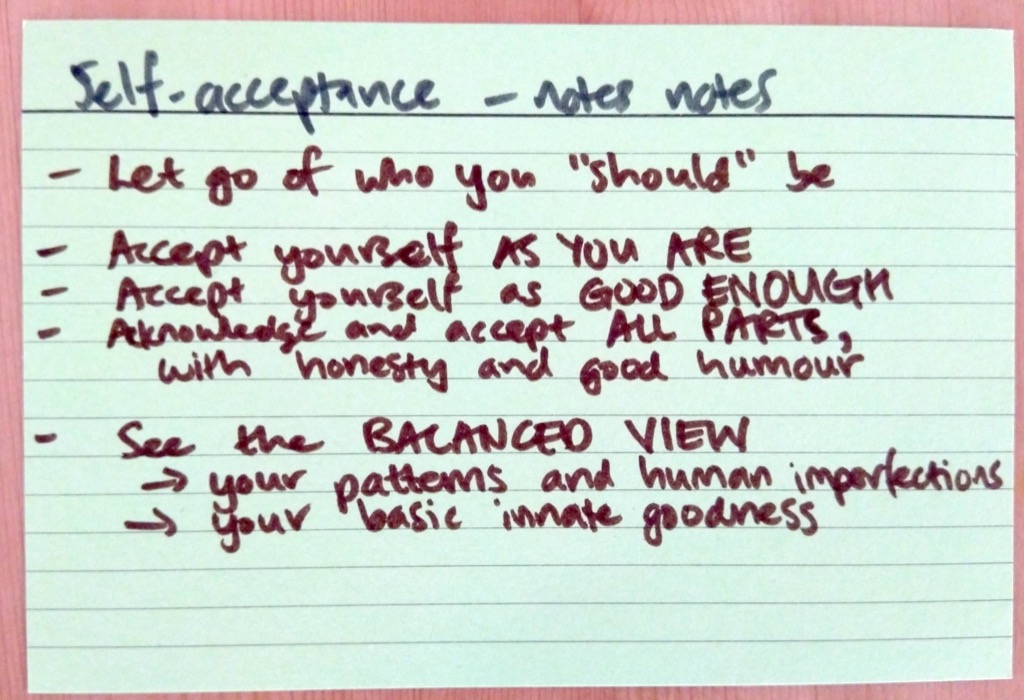 Self-acceptance - notes notes
- Let go of who you "should" be
- Accept yourself AS YOU ARE
- Accept yourself as GOOD ENOUGH
- Acknowledge and accept ALL PARTS,
with honesty and good humour
- See the BALANCED VIEW
→ your patterns and human imperfections
→ your basic innate goodness